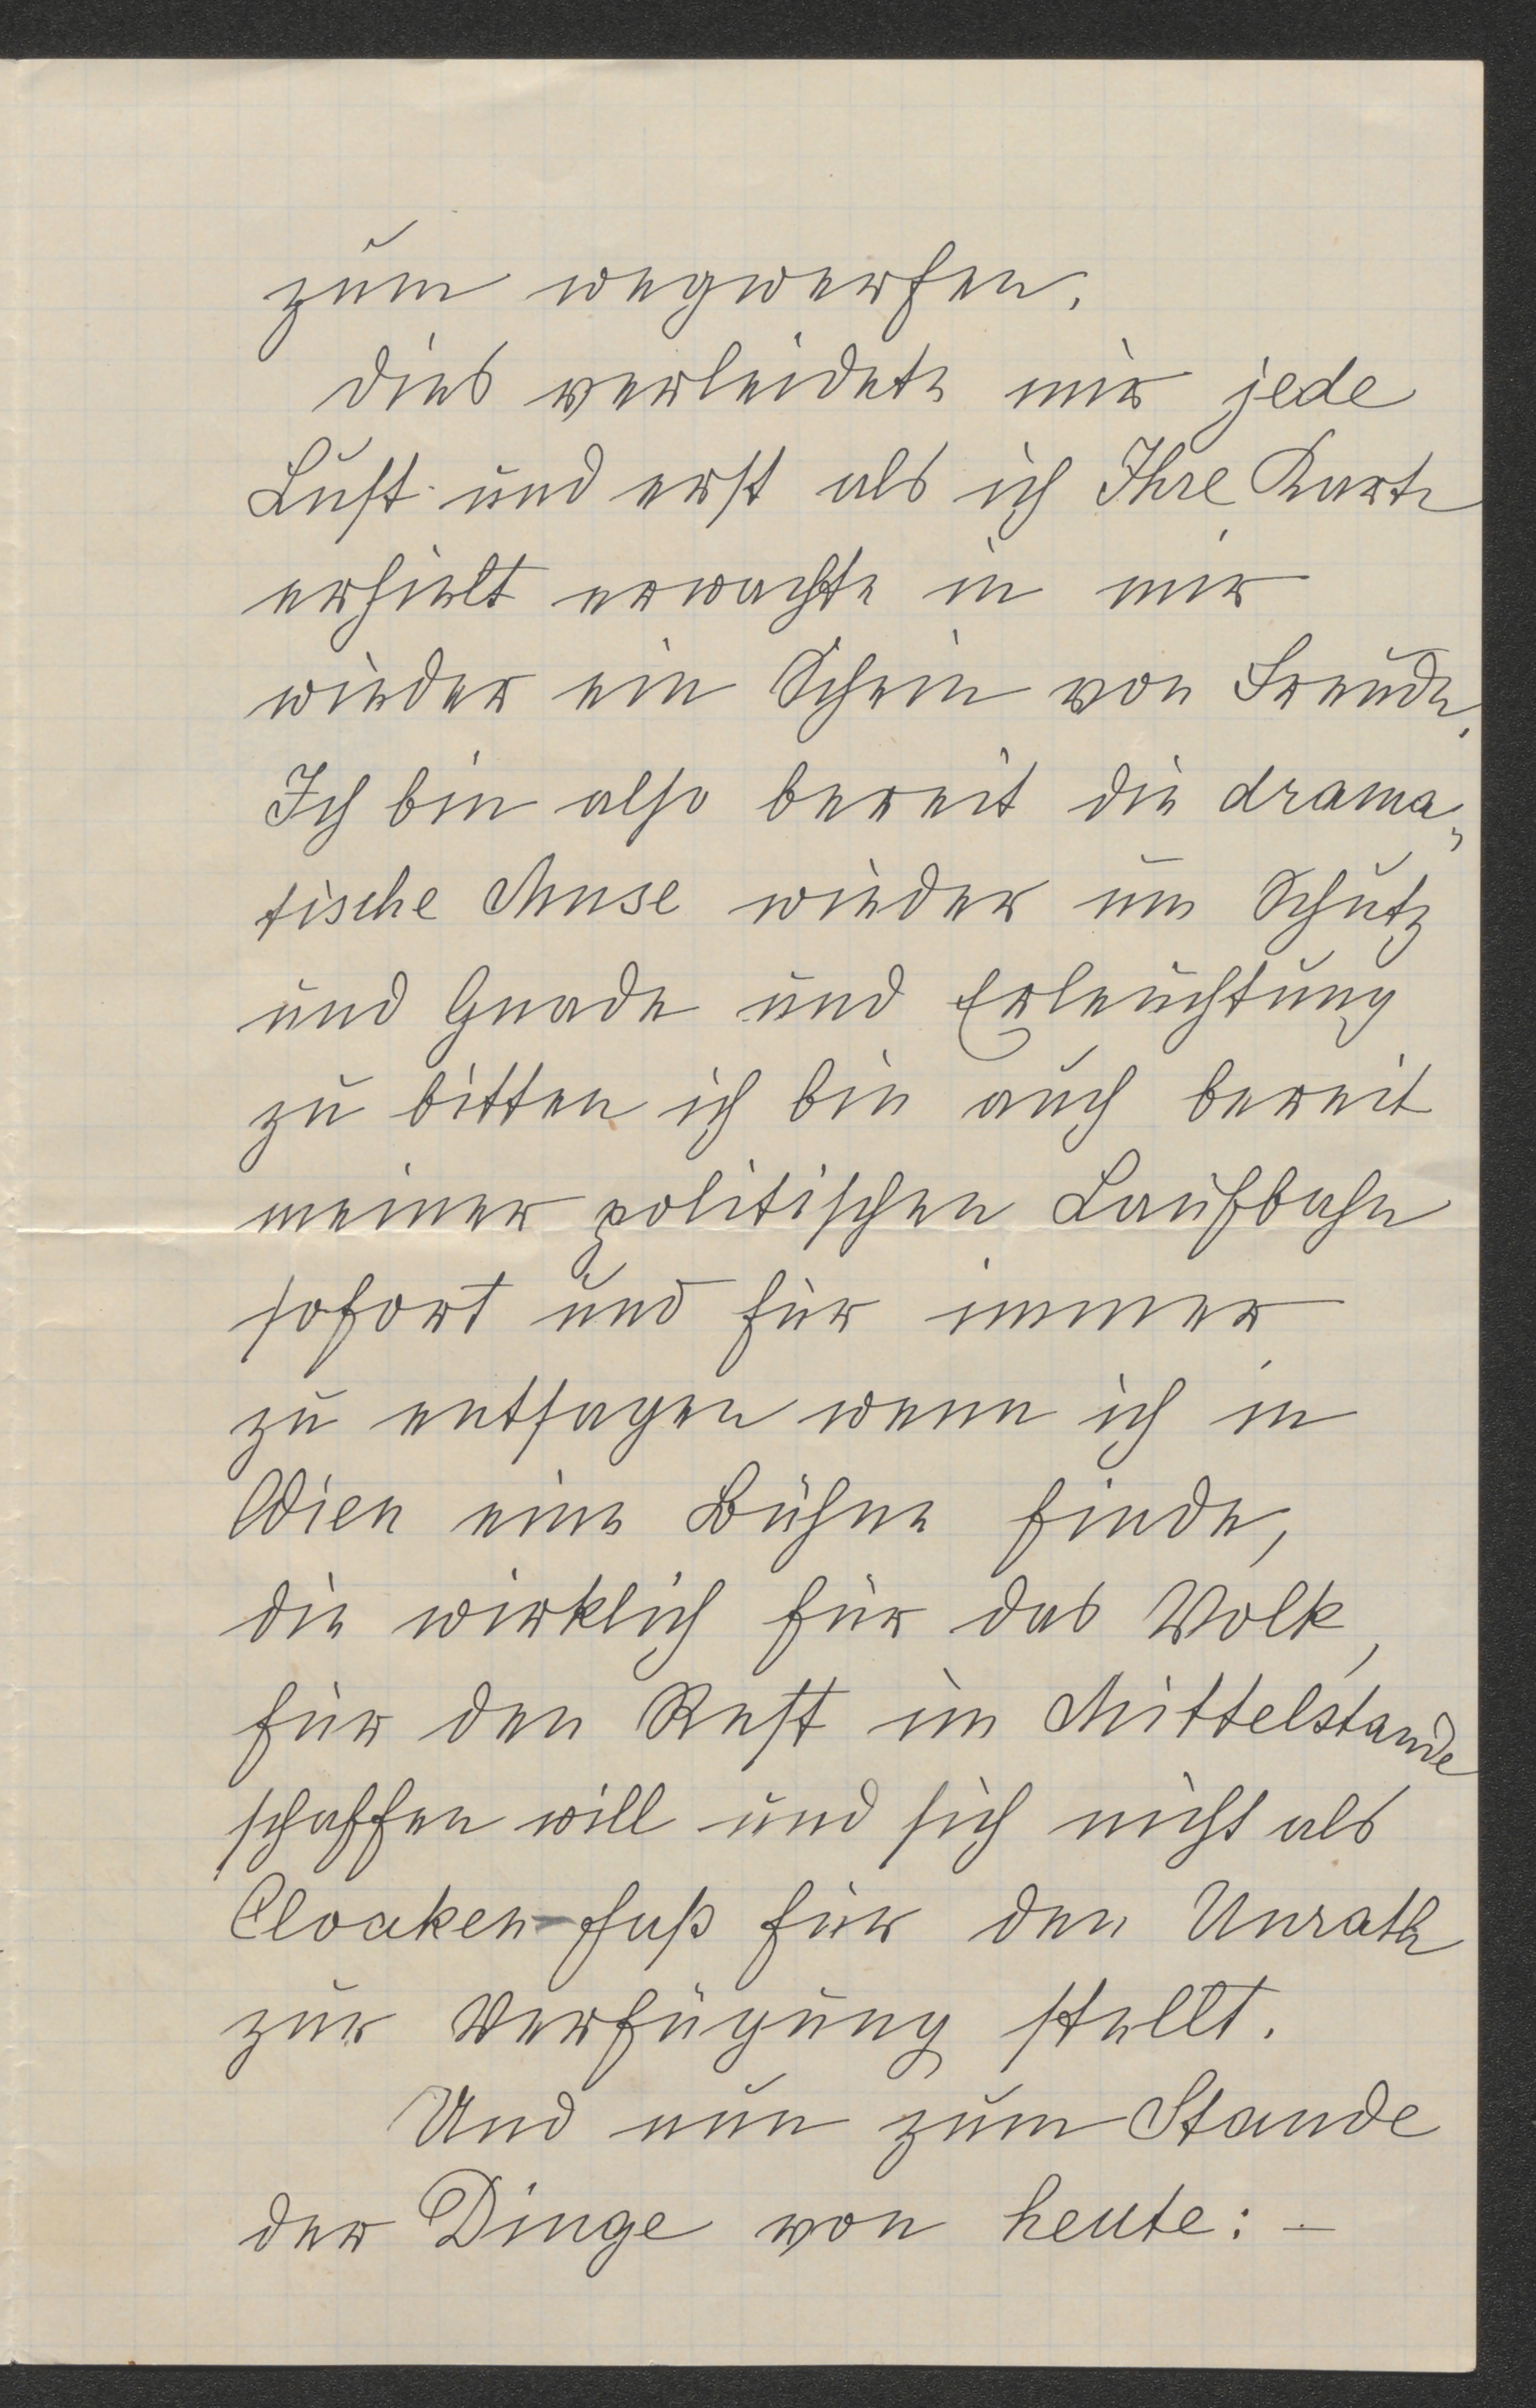 zum wegwerfen.
dies verleidete mir jede
Lust und erst als ich Ihre Karte
erhielt erwachte in mir
wieder ein Schein von Freude.
Ich bin also bereit die drama„
tische Muse wieder um Schutz
und Gnade und Erleuchtung
zu bitten ich bin auch bereit
meiner politischen Laufbahn
sofort und für immer
zu entsagen wenn ich in
Wien eine Bühne finde,
die wirklich für das Volk,
für den Rest im Mittelstande
schaffen will und sich nicht als
Cloaken-faß für den Unrath
zur Verfügung stellt.
Und nun zum Stande
der Dinge von heute: –